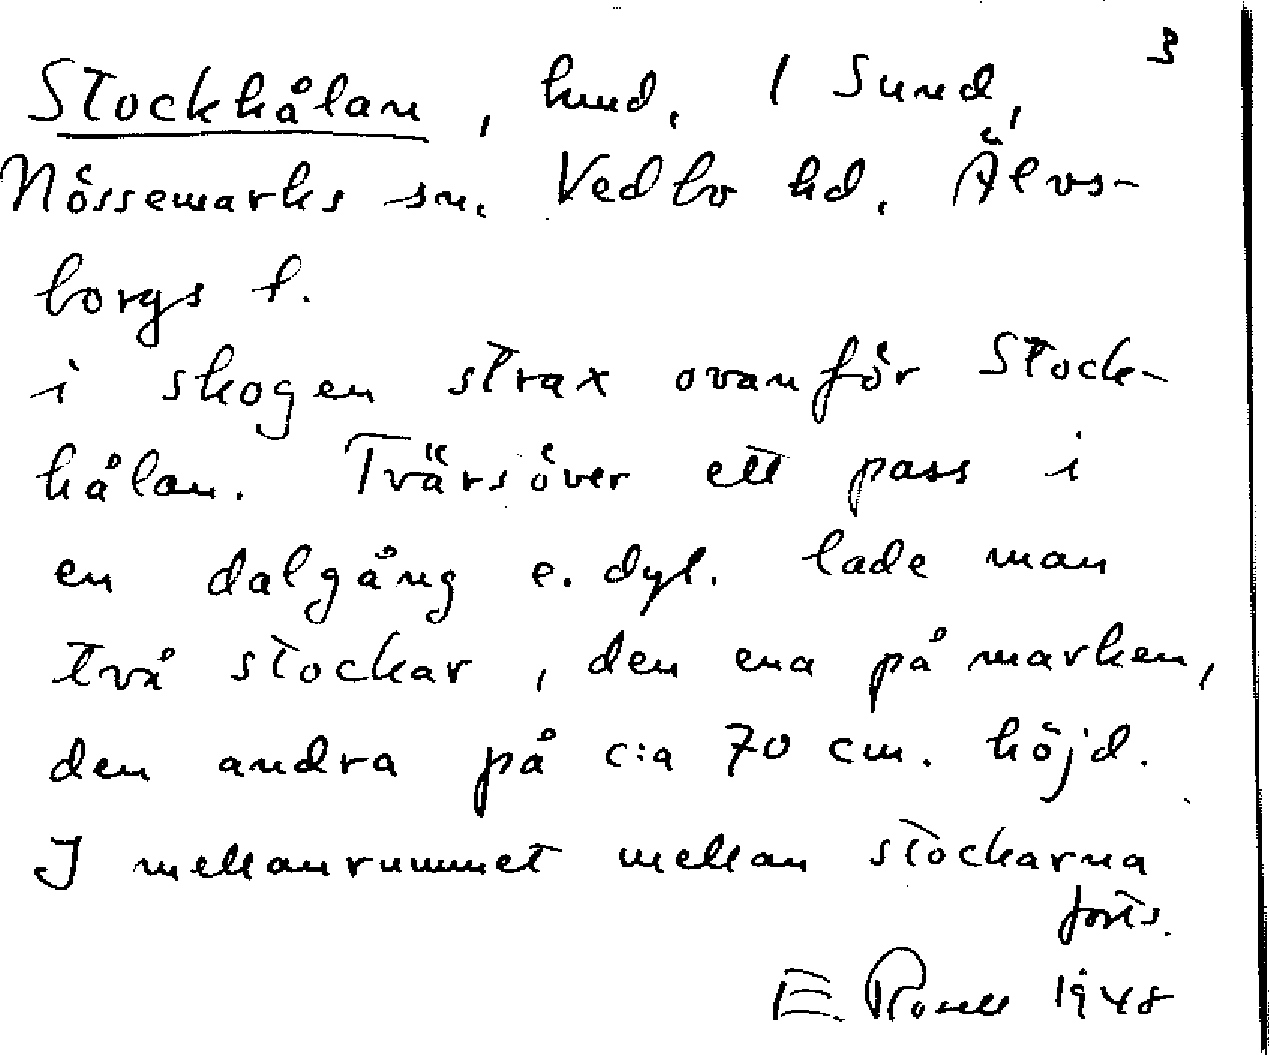 3
Stockhålan, hmd. 1 Sund,
Nössemarks sn. Vedbo hd. Älvs-
borgs l.
i skogen strax ovanför Stock-
hålan. Tvärsöver ett pass i
en dalgång e. dyl. lade man
två stockar, den ena på marken,
den andra på c:a 70 cm. höjd.
I mellanrummet mellan stockarna
forts.
E. Rosell 1948